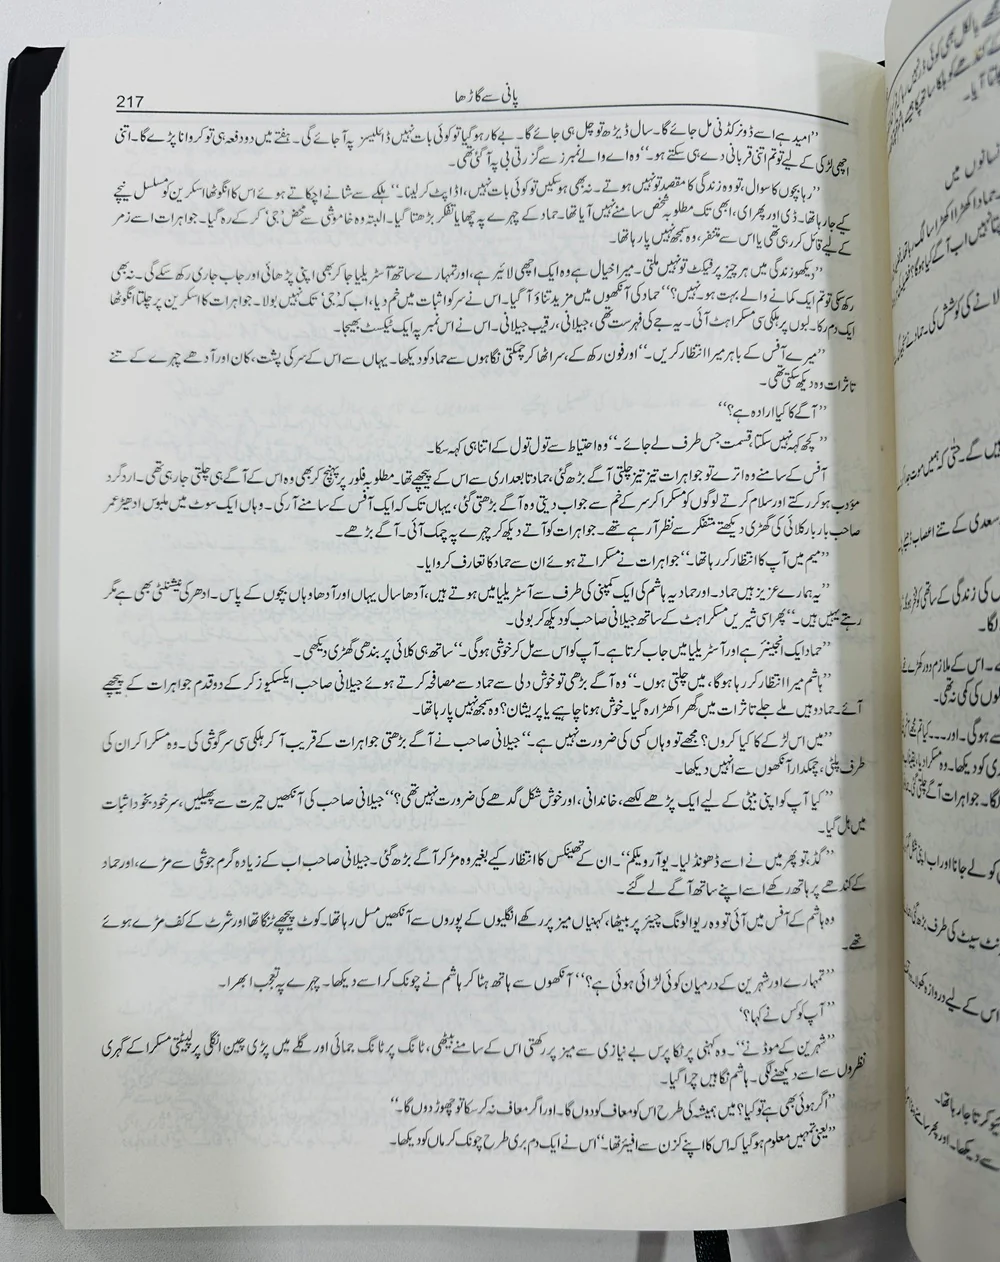 217
پانی سے گاڑھا
’’امید ہے اسے ڈونر کڈنی مل جائے گا۔ سال ڈیڑھ تو چل ہی جائے گا۔ بے کار ہو گیا تو کوئی بات نہیں ڈائلیسز پہ آ جائے گی۔ ہفتے میں دو دفعہ ہی تو کروانا پڑے گا۔ اتنی
اچھی لڑکی کے لیے تو تم اتنی قربانی دے ہی سکتے ہو۔‘‘ وہ اے والے نمبرز سے گزرتی بی پہ آ گئی تھی۔
’’رہا بچوں کا سوال، تو وہ زندگی کا مقصد تو نہیں ہوتے۔ نہ بھی ہو سکیں تو کوئی بات نہیں، اڈاپٹ کر لینا۔‘‘ ہلکے سے شانے اچکاتے ہوئے اس کا انگوٹھا اسکرین کو مسلسل نیچے
کیے جا رہا تھا۔ ڈی اور پھر ای، ابھی تک مطلوبہ شخص سامنے نہیں آیا تھا۔ حماد کے چہرے پہ چھایا تفکر بڑھتا گیا۔ البتہ وہ خاموشی سے محض ’جی‘ کر کے رہ گیا۔ جواہرات اسے زمر
کے لیے قائل کر رہی تھی یا اس سے متنفر، وہ سمجھ نہیں پا رہا تھا۔
’’دیکھو زندگی میں ہر چیز پرفیکٹ تو نہیں ملتی۔ میرا خیال ہے وہ ایک اچھی لائیر ہے، اور تمہارے ساتھ آسٹریلیا جا کر بھی اپنی پڑھائی اور جاب جاری رکھ سکے گی۔ نہ بھی
رکھ سکی تو تم ایک کمانے والے بہت ہو۔ نہیں؟‘‘ حماد کی آنکھوں میں مزید تناؤ آ گیا۔ اس نے سر کو اثبات میں خم دیا، اب کہ ’جی‘ تک نہیں بولا۔ جواہرات کا اسکرین پر چلتا انگوٹھا
ایک دم رکا۔ لبوں پر ہلکی سی مسکراہٹ آئی۔ یہ جے کی فہرست تھی، جیلانی، رقیب جیلانی۔ اس نے اس نمبر پہ ایک ٹیکسٹ بھیجا۔
’’میرے آفس کے باہر میرا انتظار کریں۔‘‘ اور فون رکھ کے، سر اٹھا کر چمکتی نگاہوں سے حماد کو دیکھا۔ یہاں سے اس کے سر کی پشت، کان اور آدھے چہرے کے تنے
تاثرات وہ دیکھ سکتی تھی۔
’’آگے کا کیا ارادہ ہے؟‘‘
’’کچھ کہہ نہیں سکتا، قسمت جس طرف لے جائے۔‘‘ وہ احتیاط سے تول تول کے اتنا ہی کہہ سکا۔
آفس کے سامنے وہ اترے تو جواہرات تیز تیز چلتی آگے بڑھ گئی، حماد تابعداری سے اس کے پیچھے تھا۔ مطلوبہ فلور پر پہنچ کر بھی وہ اس کے آگے ہی چلتی جا رہی تھی۔ ارد گرد
مؤدب ہو کر رکتے اور سلام کرتے لوگوں کو مسکرا کر سر کے خم سے جواب دیتی وہ آگے بڑھتی گئی، یہاں تک کہ ایک آفس کے سامنے آ رکی۔ وہاں ایک سوٹ میں ملبوس ادھیڑ عمر
صاحب بار بار کلائی کی گھڑی دیکھتے متفکر سے نظر آ رہے تھے۔ جواہرات کو آتے دیکھ کر چہرے پہ چمک آئی۔ آگے بڑھے۔
’’میم میں آپ کا انتظار کر رہا تھا۔‘‘ جواہرات نے مسکراتے ہوئے ان سے حماد کا تعارف کروایا۔
’’یہ ہمارے عزیز ہیں حماد۔ اور حماد یہ ہاشم کی ایک کمپنی کی طرف سے آسٹریلیا میں ہوتے ہیں، آدھا سال یہاں اور آدھا وہاں بچوں کے پاس۔ ادھر کی نیشنلٹی بھی ہے مگر
رہتے یہیں ہیں۔‘‘ پھر اسی شیریں مسکراہٹ کے ساتھ جیلانی صاحب کو دیکھ کر بولی۔
’’حماد ایک انجینئر ہے اور آسٹریلیا میں جاب کرتا ہے۔ آپ کو اس سے مل کر خوشی ہوگی۔‘‘ ساتھ ہی کلائی پر بندھی گھڑی دیکھی۔
’’ہاشم میرا انتظار کر رہا ہوگا، میں چلتی ہوں۔‘‘ وہ آگے بڑھی تو خوش دلی سے حماد سے مصافحہ کرتے ہوئے جیلانی صاحب ایکسکیوز کر کے دو قدم جواہرات کے پیچھے
آئے۔ حماد وہیں ملے جلے تاثرات میں گھرا کھڑا رہ گیا۔ خوش ہونا چاہیے یا پریشان؟ وہ سمجھ نہیں پا رہا تھا۔
’’میں اس لڑکے کا کیا کروں؟ مجھے تو وہاں کسی کی ضرورت نہیں ہے۔‘‘ جیلانی صاحب نے آگے بڑھتی جواہرات کے قریب آ کر ہلکی سی سرگوشی کی۔ وہ مسکرا کر ان کی
طرف پلٹی، چمکدار آنکھوں سے انہیں دیکھا۔
’’کیا آپ کو اپنی بیٹی کے لیے ایک پڑھے لکھے، خاندانی، اور خوش شکل گدھے کی ضرورت نہیں تھی؟‘‘ جیلانی صاحب کی آنکھیں حیرت سے پھیلیں، سر خود بخود اثبات
میں ہل گیا۔
’’گڈ، تو پھر میں نے اسے ڈھونڈ لیا۔ یو آر ویلکم‘‘۔ ان کے تھینکس کا انتظار کیے بغیر وہ مڑ کر آگے بڑھ گئی۔ جیلانی صاحب اب کے زیادہ گرم جوشی سے مڑے، اور حماد
کے کندھے پر ہاتھ رکھے اسے اپنے ساتھ آگے لے گئے۔
وہ ہاشم کے آفس میں آئی تو وہ ریوالونگ چیئر پر بیٹھا، کہنیاں میز پر رکھے انگلیوں کے پوروں سے آنکھیں مسل رہا تھا۔ کوٹ پیچھے ٹنگا تھا اور شرٹ کے کف مڑے ہوئے
تھے۔
’’تمہارے اور شہرین کے درمیان کوئی لڑائی ہوئی ہے؟‘‘ آنکھوں سے ہاتھ ہٹا کر ہاشم نے چونک کر اسے دیکھا۔ چہرے پہ تعجب ابھرا۔
’’آپ کو کس نے کہا؟‘
’’شہرین کے موڈ نے‘‘۔ وہ کہنی پر ٹکا پرس بے نیازی سے میز پر رکھتی اس کے سامنے بیٹھی، ٹانگ پر ٹانگ جمائی اور گلے میں پڑی چین انگلی پر لپیٹتی مسکرا کے گہری
نظروں سے اسے دیکھنے لگی۔ ہاشم نگاہیں چرا گیا۔
’’اگر ہوئی بھی ہے تو کیا؟ میں ہمیشہ کی طرح اس کو معاف کر دوں گا۔ اور اگر معاف نہ کر سکا تو چھوڑ دوں گا۔‘‘
’’یعنی تمہیں معلوم ہو گیا کہ اس کا اپنے کزن سے افیئر تھا۔‘‘ اس نے ایک دم بری طرح چونک کر ماں کو دیکھا۔